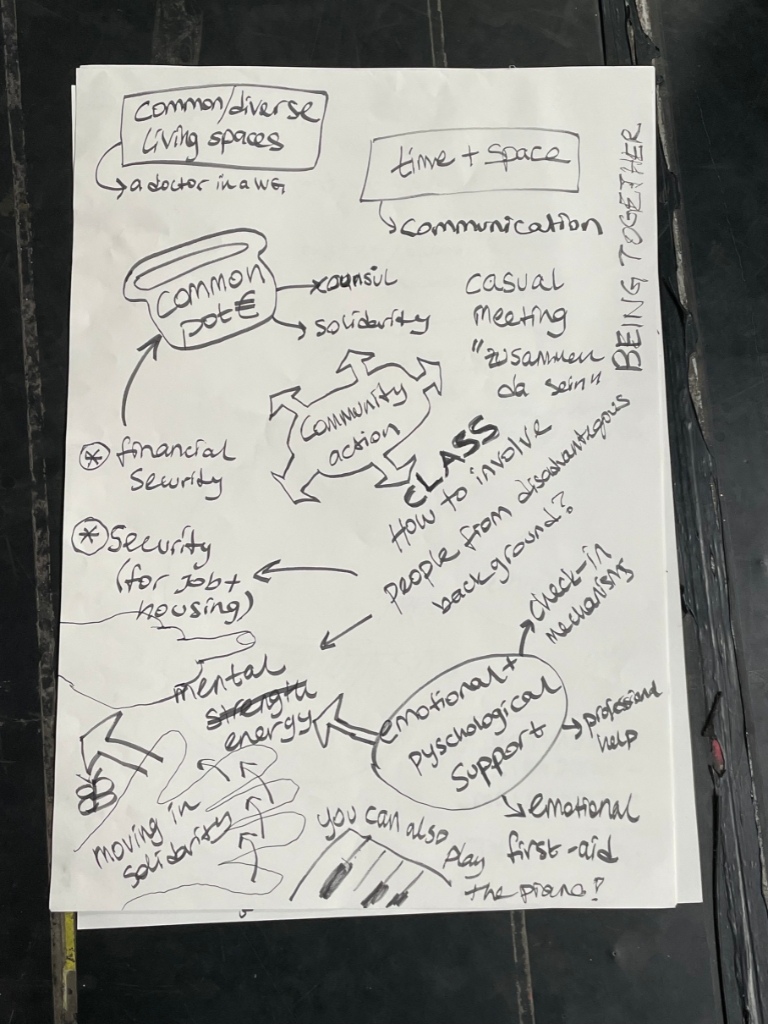 common/diverse
living spaces
a doctor in a WG
time + space
communication
BEING TOGETHER
common
pot €
solidarity
casual
meeting
"zusammen
da sein"
Community
action
* financial
security
CLASS
How to involve
people from disadvantageous
background?
* Security
(for job +
housing)
mental
strength
energy
emotional +
pyschological
support
check-in
mechanisms
professional
help
emotional
first-aid
moving in
solidarity
you can also
play
the piano!